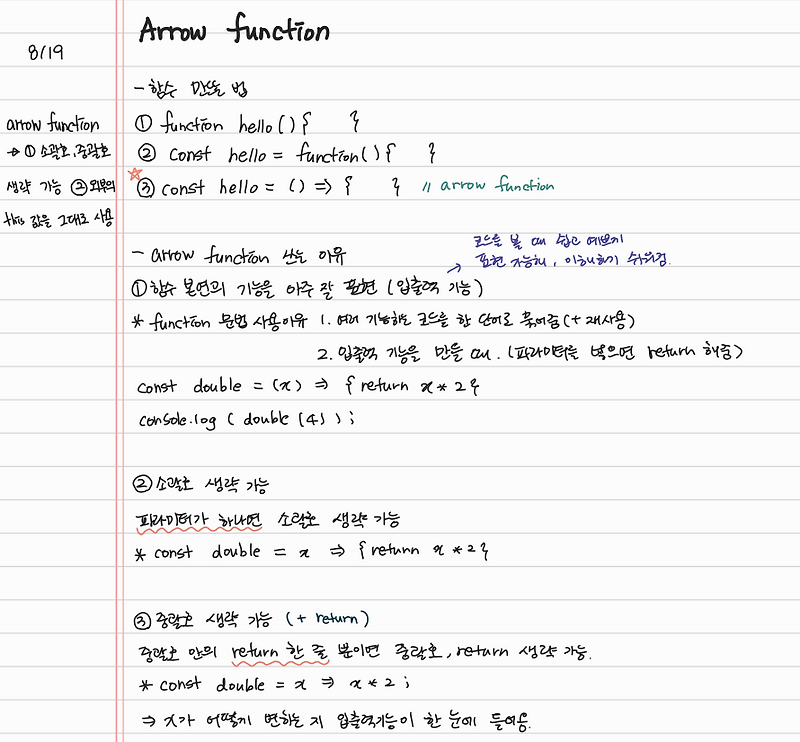 Arrow function
8/19
arrow function
→ ① 소괄호, 중괄호
생략 가능 ② 외부의
this 값을 그대로 사용
- 함수 만드는 법
① function hello () { }
② const hello = function() { }
☆③ const hello = () => { } // arrow function
- arrow function 쓰는 이유
코드를 볼 때 쉽고 예쁘게
→ 표현 가능해, 이해하기 쉬워짐.
① 함수 본연의 기능을 아주 잘 표현 (입출력 기능)
* function 문법 사용이유 1. 여러 기능하는 코드를 한 단어로 묶어줌 (+ 재사용)
2. 입출력 기능을 만들 때. (파라미터를 넣으면 return 해줌)
const double = (x) => { return x * 2 }
console.log ( double (4) ) ;
② 소괄호 생략 가능
파라미터가 하나면 소괄호 생략 가능
* const double = x => { return x * 2 }
③ 중괄호 생략 가능 (+ return)
중괄호 안의 return 한 줄 뿐이면 중괄호, return 생략 가능.
* const double = x => x * 2 ;
⇒ x가 어떻게 변하는 지 입출력기능이 한 눈에 들어옴.